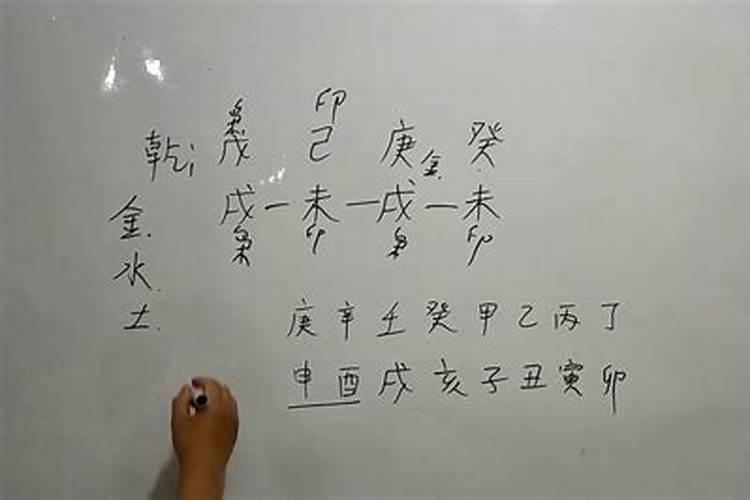 枭 印
乾; 戊 己 庚 金. 癸
金. 戌 — 未 — 戌 — 未
枭 印 枭 印
水.
土. 庚 辛 壬 癸 甲 乙 丙 丁
申 酉 戌 亥 子 丑 寅 卯